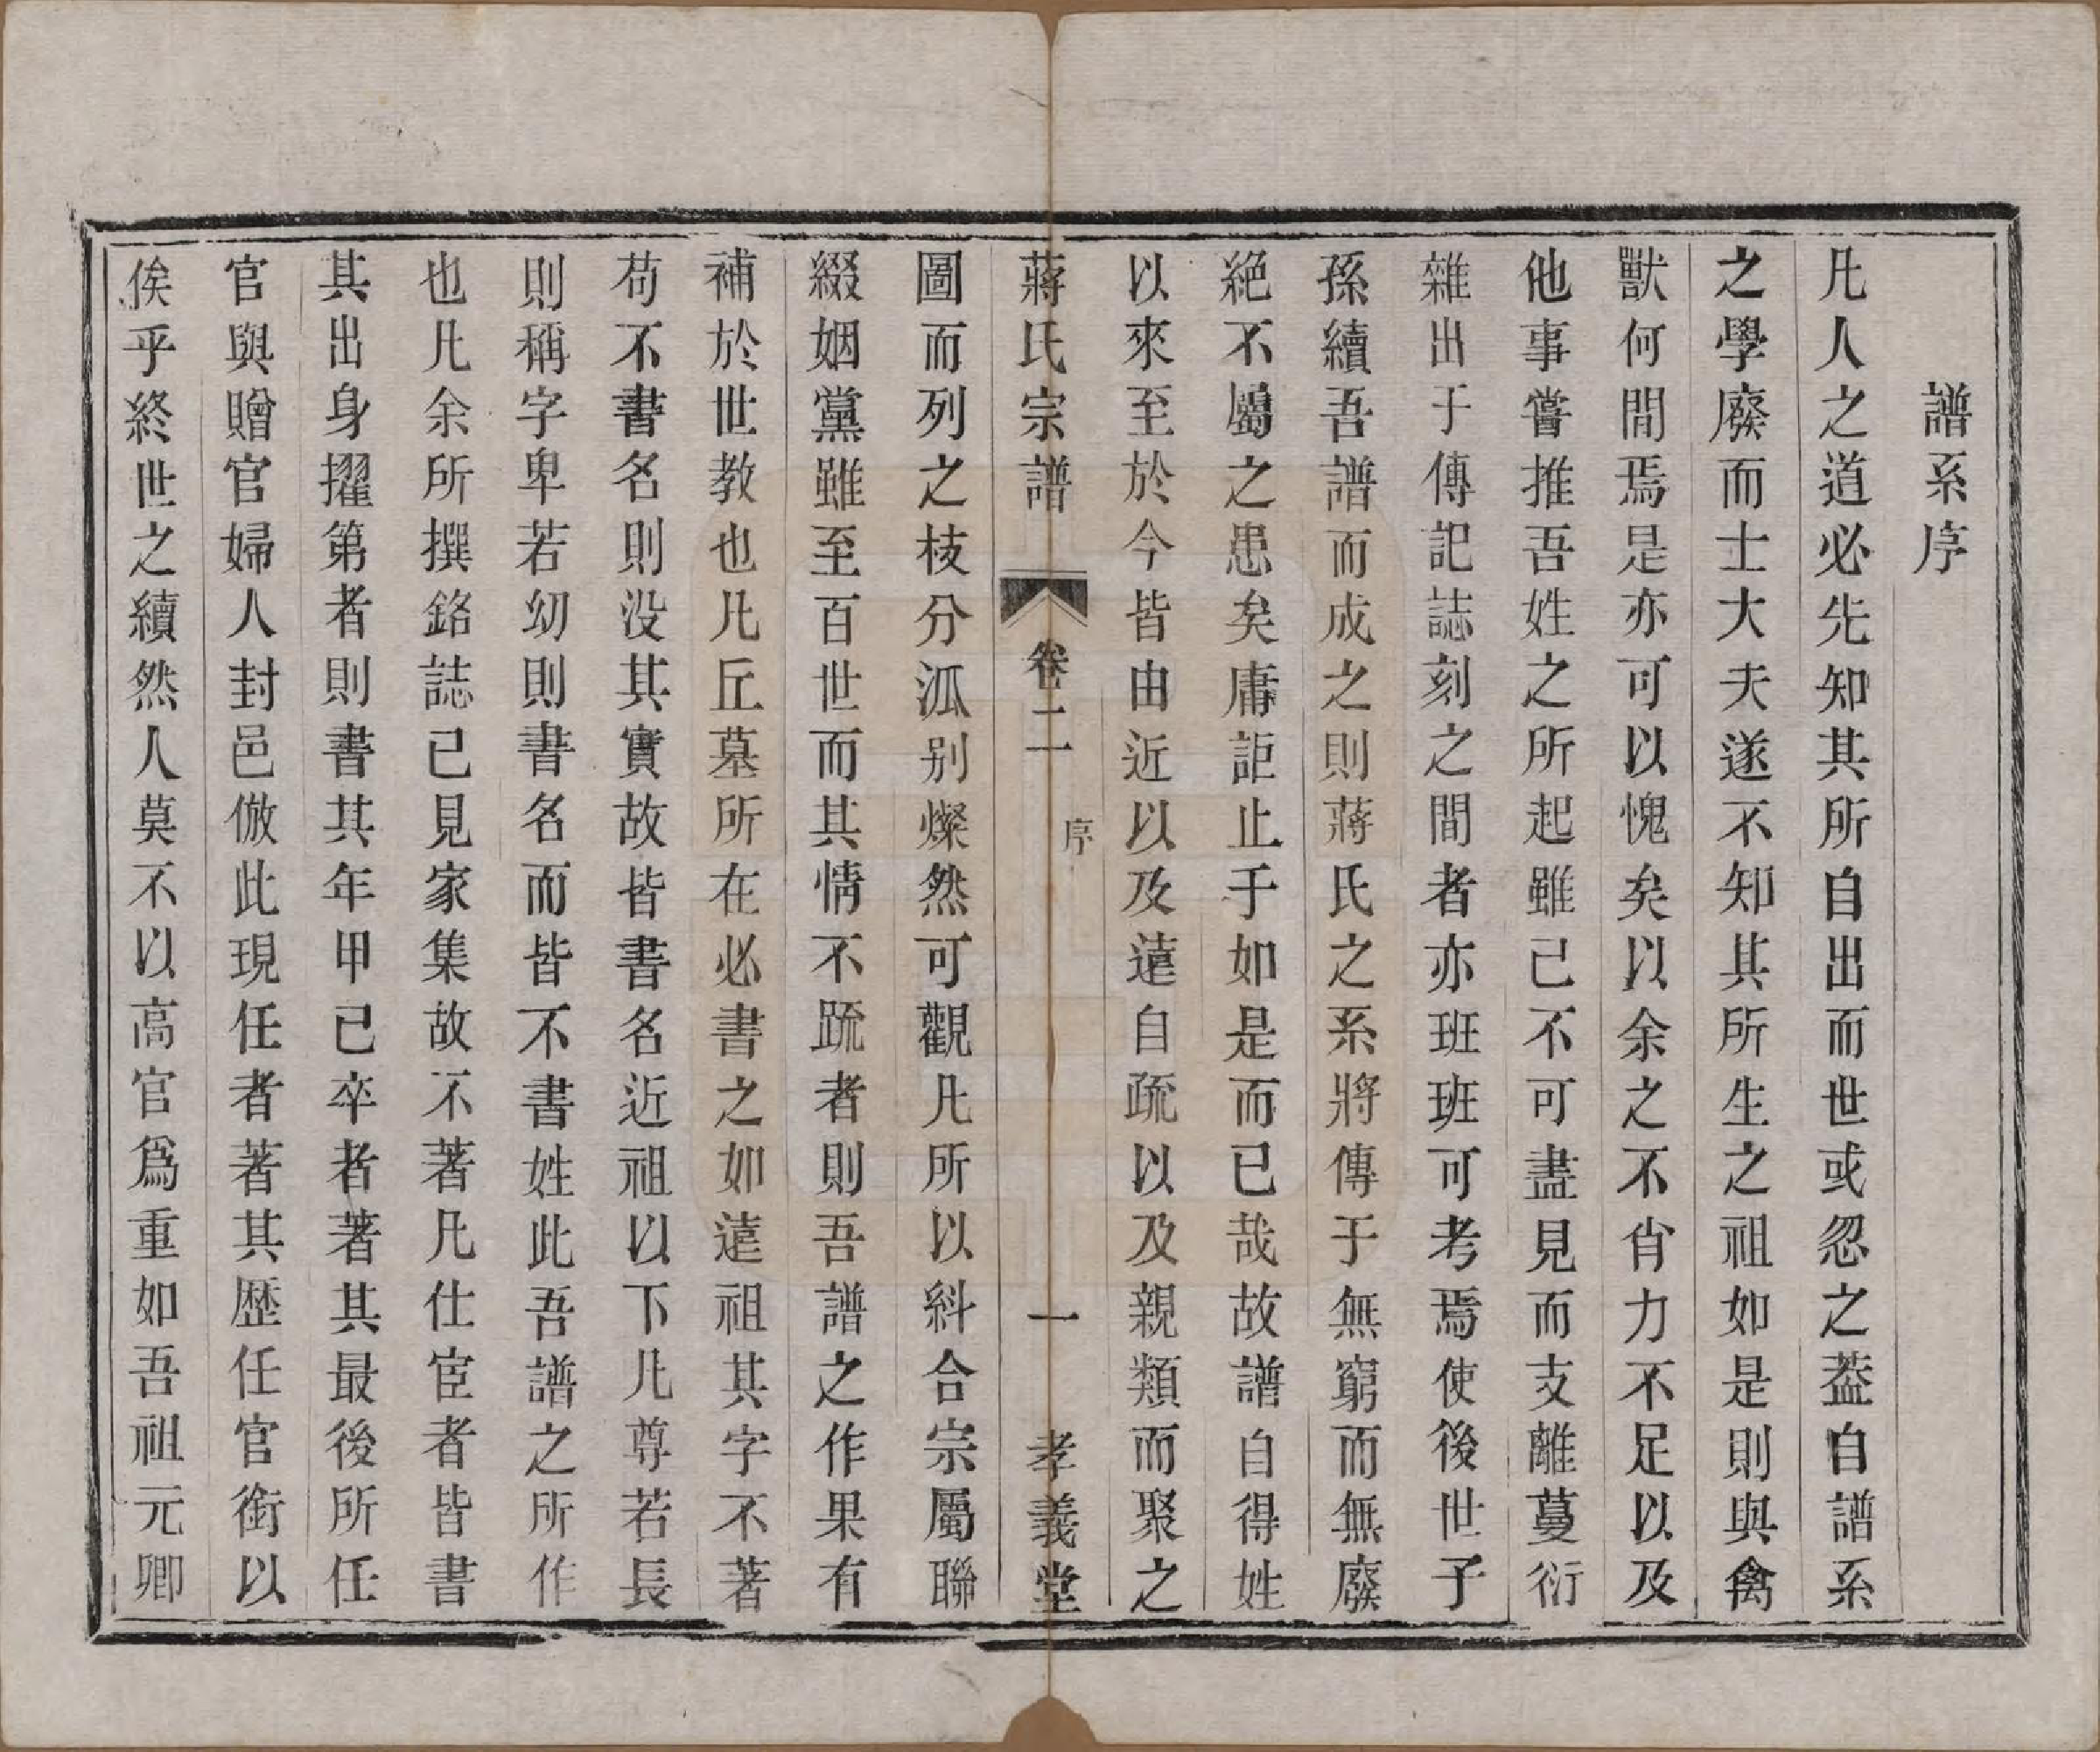 譜系序
凡人之道必先知其所自出而世或忽之葢自譜系
之學廢而士大夫遂不知其所生之祖如是則與禽
獸何間焉是亦可以愧矣以余之不肖力不足以及
他事嘗推吾姓之所起雖已不可盡見而支離蔓衍
雜出于傳記誌刻之間者亦班班可考焉使後世子
孫續吾譜而成之則蔣氏之系將傳于無窮而無廢
絕不屬之患矣庸詎止于如是而已哉故譜自得姓
以來至於今皆由近以及遠自疏以及親類而聚之
蔣氏宗譜 卷二 序 一 孝義堂
圖而列之枝分泒別燦然可觀凡所以糾合宗屬聯
綴姻黨雖至百世而其情不䟽者則吾譜之作果有
補於世教也凡丘墓所在必書之如遠祖其字不著
苟不書名則没其實故皆書名近祖以下凡尊若長
則稱字卑若幼則書名而皆不書姓此吾譜之所作
也凡余所撰銘誌已見家集故不著凡仕宦者皆書
其出身擢第者則書其年甲已卒者著其最後所任
官與贈官婦人封邑倣此現任者著其歷任官銜以
俟乎終世之續然人莫不以高官爲重如吾祖元卿